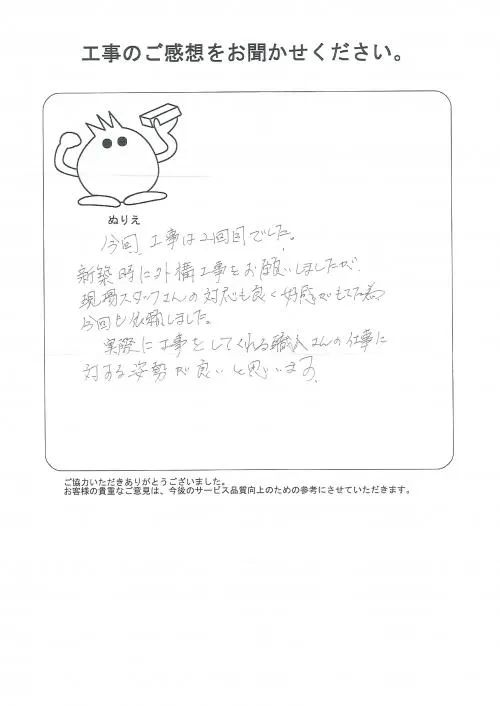 工事のご感想をお聞かせください。
ぬりえ
今回、工事は2回目でした。
新築時に外構工事をお願いしましたが、
現場スタッフさんの対応も良く好感がもてた為
今回も依頼しました。
実際に工事をしてくれる職人さんの仕事に
対する姿勢が良いと思います。
ご協力いただきありがとうございました。
お客様の貴重なご意見は、今後のサービス品質向上のための参考にさせていただきます。